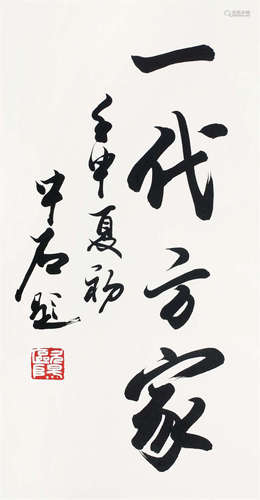 一代方家
壬申夏初
中石题